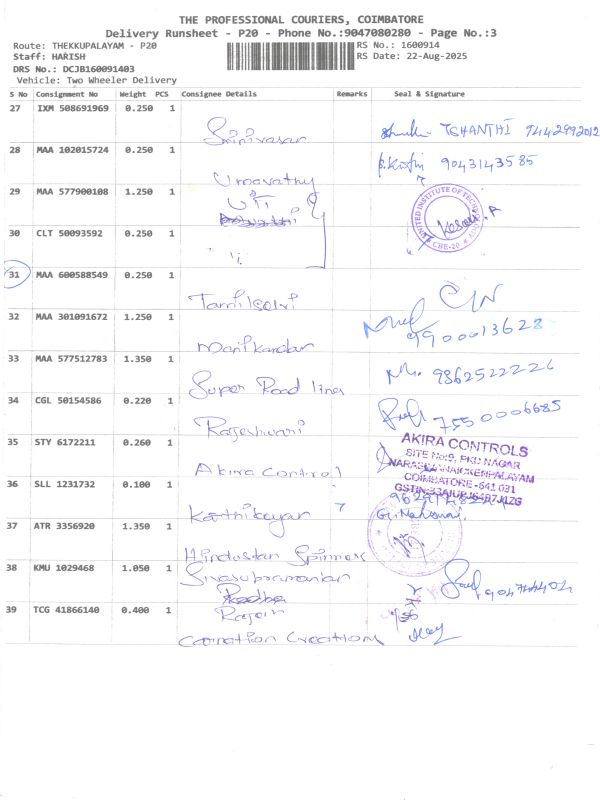 THE PROFESSIONAL COURIERS, COIMBATORE
Delivery Runsheet - P20 - Phone No.:9047080280 - Page No.:3
Route: THEKKUPALAYAM - P20
RS No.: 1600914
Staff: HARISH
RS Date: 22-Aug-2025
DRS No.: DCJB160091403
Vehicle: Two Wheeler Delivery
S No Consignment No Weight PCS Consignee Details Remarks Seal & Signature
27 IXM 508691969 0.250 1
Srinivasan
TSHANTHI 9442992012
28 MAA 102015724 0.250 1
9043143585
Umavathy
29 MAA 577900108 1.250 1
UTI
UNITED INSTITUTE OF TECHNOLOGY
CBE-20
30 CLT 50093592 0.250 1
31 MAA 600588549 0.250 1
Tamilselvi
32 MAA 301091672 1.250 1
Manikandan
33 MAA 577512783 1.350 1
9862522226
Super Road lines
34 CGL 50154586 0.220 1
7550006685
Rajeshwari
35 STY 6172211 0.260 1
AKIRA CONTROLS
SITE No:9, PKD NAGAR
NARASIMANAICKENPALAYAM
COIMBATORE-641 031
Akira Control
36 SLL 1231732 0.100 1
Karthikeyan
37 ATR 3356920 1.350 1
Hindustan Spinners
38 KMU 1029468 1.050 1
Sivasubramanian
39 TCG 41866140 0.400 1
Rajan
Carnation Creations